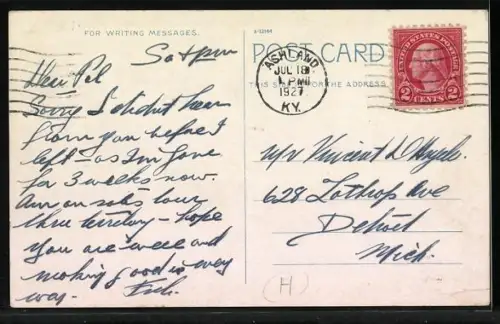 FOR WRITING MESSAGES.
Sat pm
Dear Pal
Sorry I didn't hear
from you before I
left - as I'm gone
for 3 weeks now.
Am on sales tour
thru territory - hope
you are well and
making good in every
way.
POST CARD
THIS SIDE FOR THE ADDRESS
ASHLAND
JUL 18
1 PM
1927
KY.
UNITED STATES POSTAGE
2 CENTS 2
Mr Vincent D
628 Lothrop Ave
Detroit
Mich.
(H)